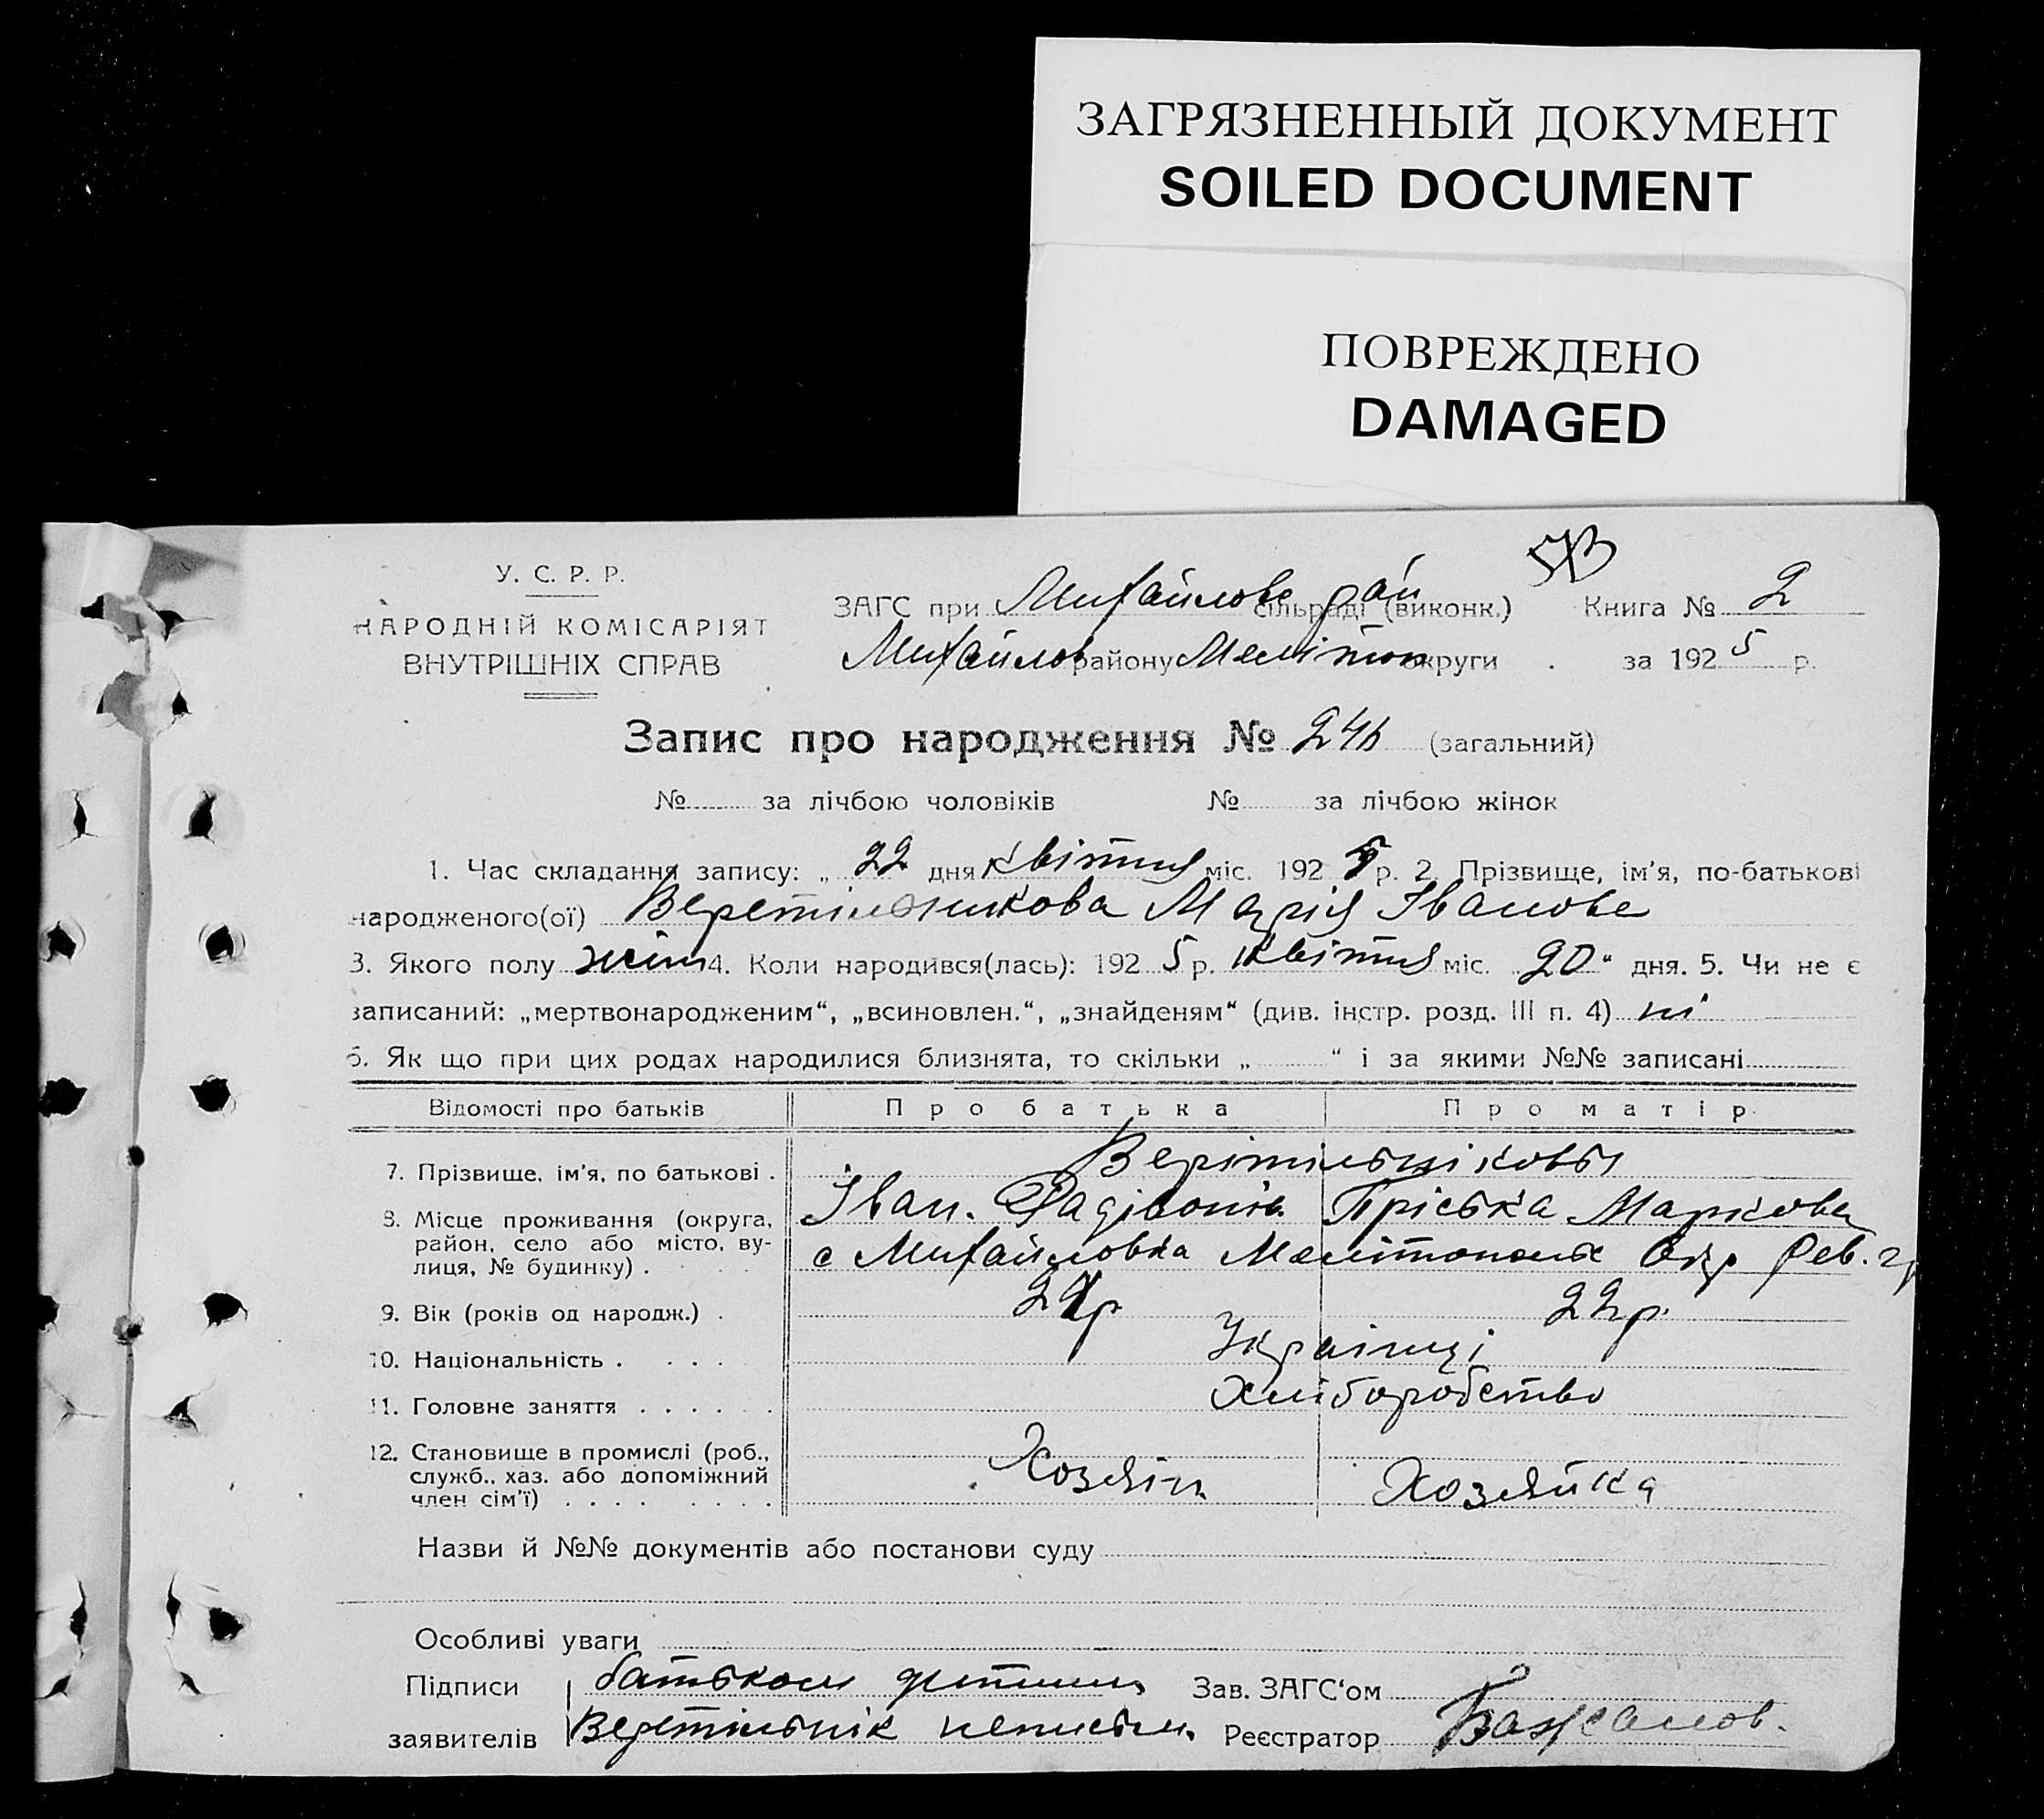 ЗАГРЯЗНЕННЫЙ ДОКУМЕНТ
SOILED DOCUMENT
ПОВРЕЖДЕНО
DAMAGED
У. С. Р. Р.
НАРОДНІЙ КОМІСАРІЯТ
ВНУТРІШНІХ СПРАВ
ЗАГС при Михайлове рай сільраді (виконк.) Книга № 2
Михайлов району Мелітоп округи за 1925 р.
Запис про народження № 246 (загальний)
№ за лічбою чоловіків № за лічбою жінок
1. Час складання запису: „ 22 дня квітня міс. 1925 р. 2. Прізвище, ім'я, по-батькові
народженого(ої) Веретільникова Марія Іванове
3. Якого полу жін 4. Коли народився(лась): 1925 р. квітня міс. 20 “ дня. 5. Чи не є
записаний: „мертвонародженим“, „всиновлен.“, „знайденям“ (див. інстр. розд. III п. 4) ні
6. Як що при цих родах народилися близнята, то скільки „ “ і за якими №№ записані
Відомості про батьків Про батька Про матір
7. Прізвище, ім'я, по батькові . Верітільніковы
Іван. Радівонів Пріська Маркова
8. Місце проживання (округа, район, село або місто, вулиця, № будинку) . с Михайловка Мелітопольск Окр Рев.
9. Вік (років од народж.) . 22р 22р.
10. Національність . . . . Українці
11. Головне заняття . . . . . . Хліборобство
12. Становище в промислі (роб., служб., хаз. або допоміжний член сім'ї) . . . . . . . . Хозяін Хозяйка
Назви й №№ документів або постанови суду
Особливі уваги
Підписи батьком дитини Зав. ЗАГС‘ом
заявителів Веретільнік неписьм. Реєстратор Бажанов.